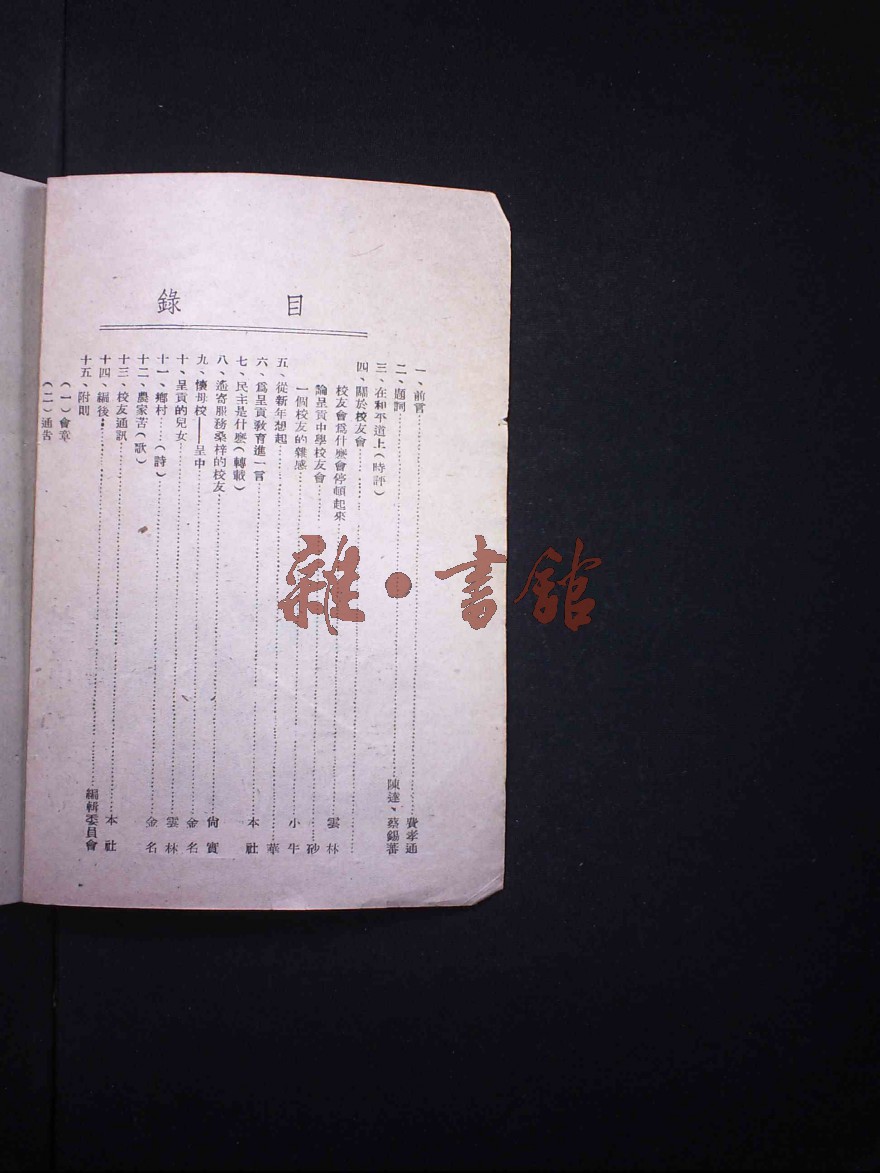 目錄
一、前言……費孝通
二、題詞……陳達、蔡錫蕃
三、在和平道上(時評)
四、關於校友會……
校友會爲什麽會停頓起來……雲林
論呈貢中學校友會……砂
一個校友的雜感……小牛
五、從新年想起……華
六、爲呈貢教育進一言……本社
七、民主是什麽(轉載)
八、遙寄服務桑梓的校友……尙實
九、懷母校——呈中……金名
十、呈貢的兒女……雲林
十一、鄉村……(詩)……金名
十二、農家苦(歌)
十三、校友通訊……本社
十四、編後……編輯委員會
十五、附則
(一)會章
(二)通告
雜·書舘